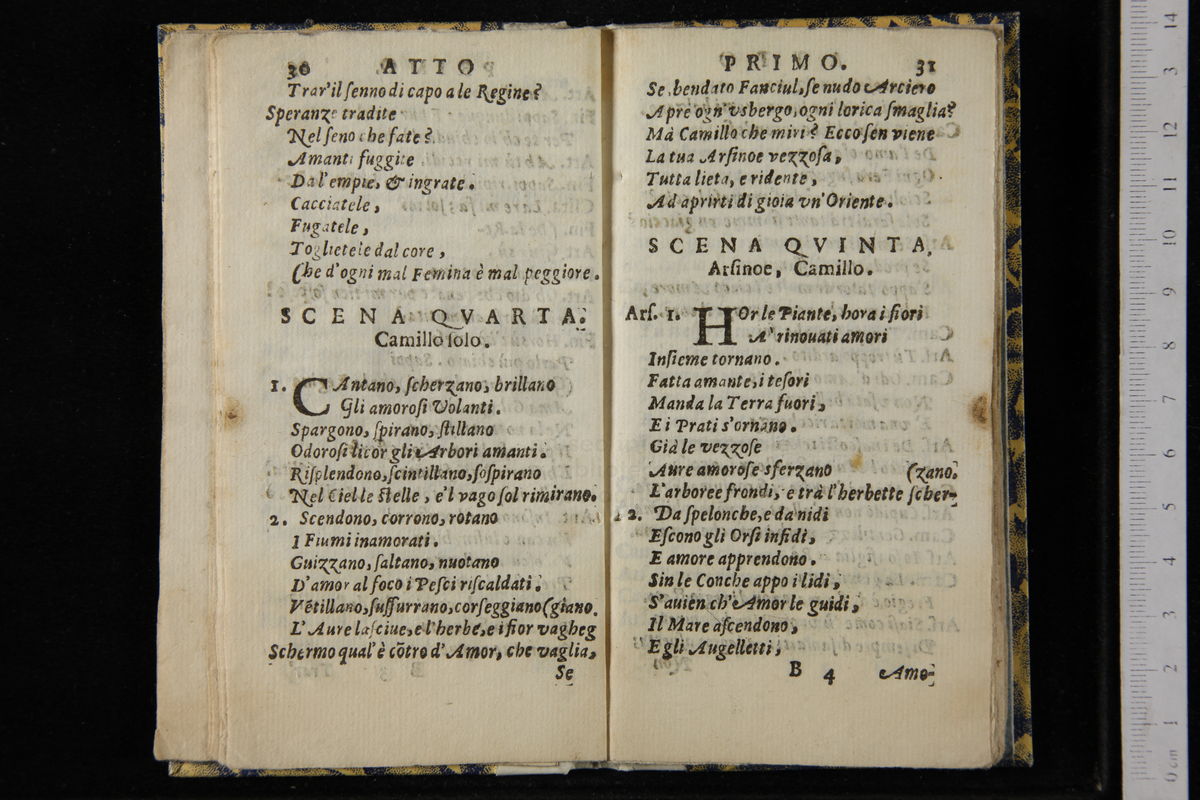 30 ATTO
Trar'il ſenno di capo a le Regine?
Speranze tradite
Nel ſeno che fate?
Amanti fuggite
Da l'empie, & ingrate.
Cacciatele,
Fugatele,
Toglietele dal core,
Che d'ogni mal Femina è mal peggiore.
SCENA QVARTA.
Camillo ſolo.
1. CAntano, ſcherzano, brillano
Gli amoroſi Volanti.
Spargono, ſpirano, ſtillano
Odoroſi licor gli Arbori amanti.
Riſplendono, ſcintillano, ſoſpirano
Nel Ciel le ſtelle, e'l vago ſol rimirano.
2. Scendono, corrono, rotano
I Fiumi inamorati.
Guizzano, ſaltano, nuotano
D'amor al foco i Peſci riſcaldati.
Vẽtillano, ſuſſurrano, corſeggiano (giano.
L'Aure laſciue, e l'herbe, e i fior vagheg
Schermo qual'è cõtro d'Amor, che vaglia,
Se
PRIMO. 31
Se bendato Fanciul, ſe nudo Arciero
Apre ogn'vsbergo, ogni lorica ſmaglia?
Mà Camillo che miri? Ecco ſen viene
La tua Arſinoe vezzoſa,
Tutta lieta, e ridente,
Ad aprirti di gioia vn'Oriente.
SCENA QVINTA.
Arſinoe, Camillo.
Arſ. 1. HOr le Piante, hora i fiori
A' rinouati amori
Inſieme tornano.
Fatta amante, i teſori
Manda la Terra fuori,
E i Prati s'ornano.
Già le vezzoſe
Aure amoroſe sferzano (zano.
L'arboree frondi, e trà l'herbette ſcher-
2. Da ſpelonche, e da nidi
Eſcono gli Orſi infidi,
E amore apprendono.
Sin le Conche appo i lidi,
S'auien ch'Amor le guidi,
Il Mare aſcendono,
E gli Augelletti,
B 4 Amo-